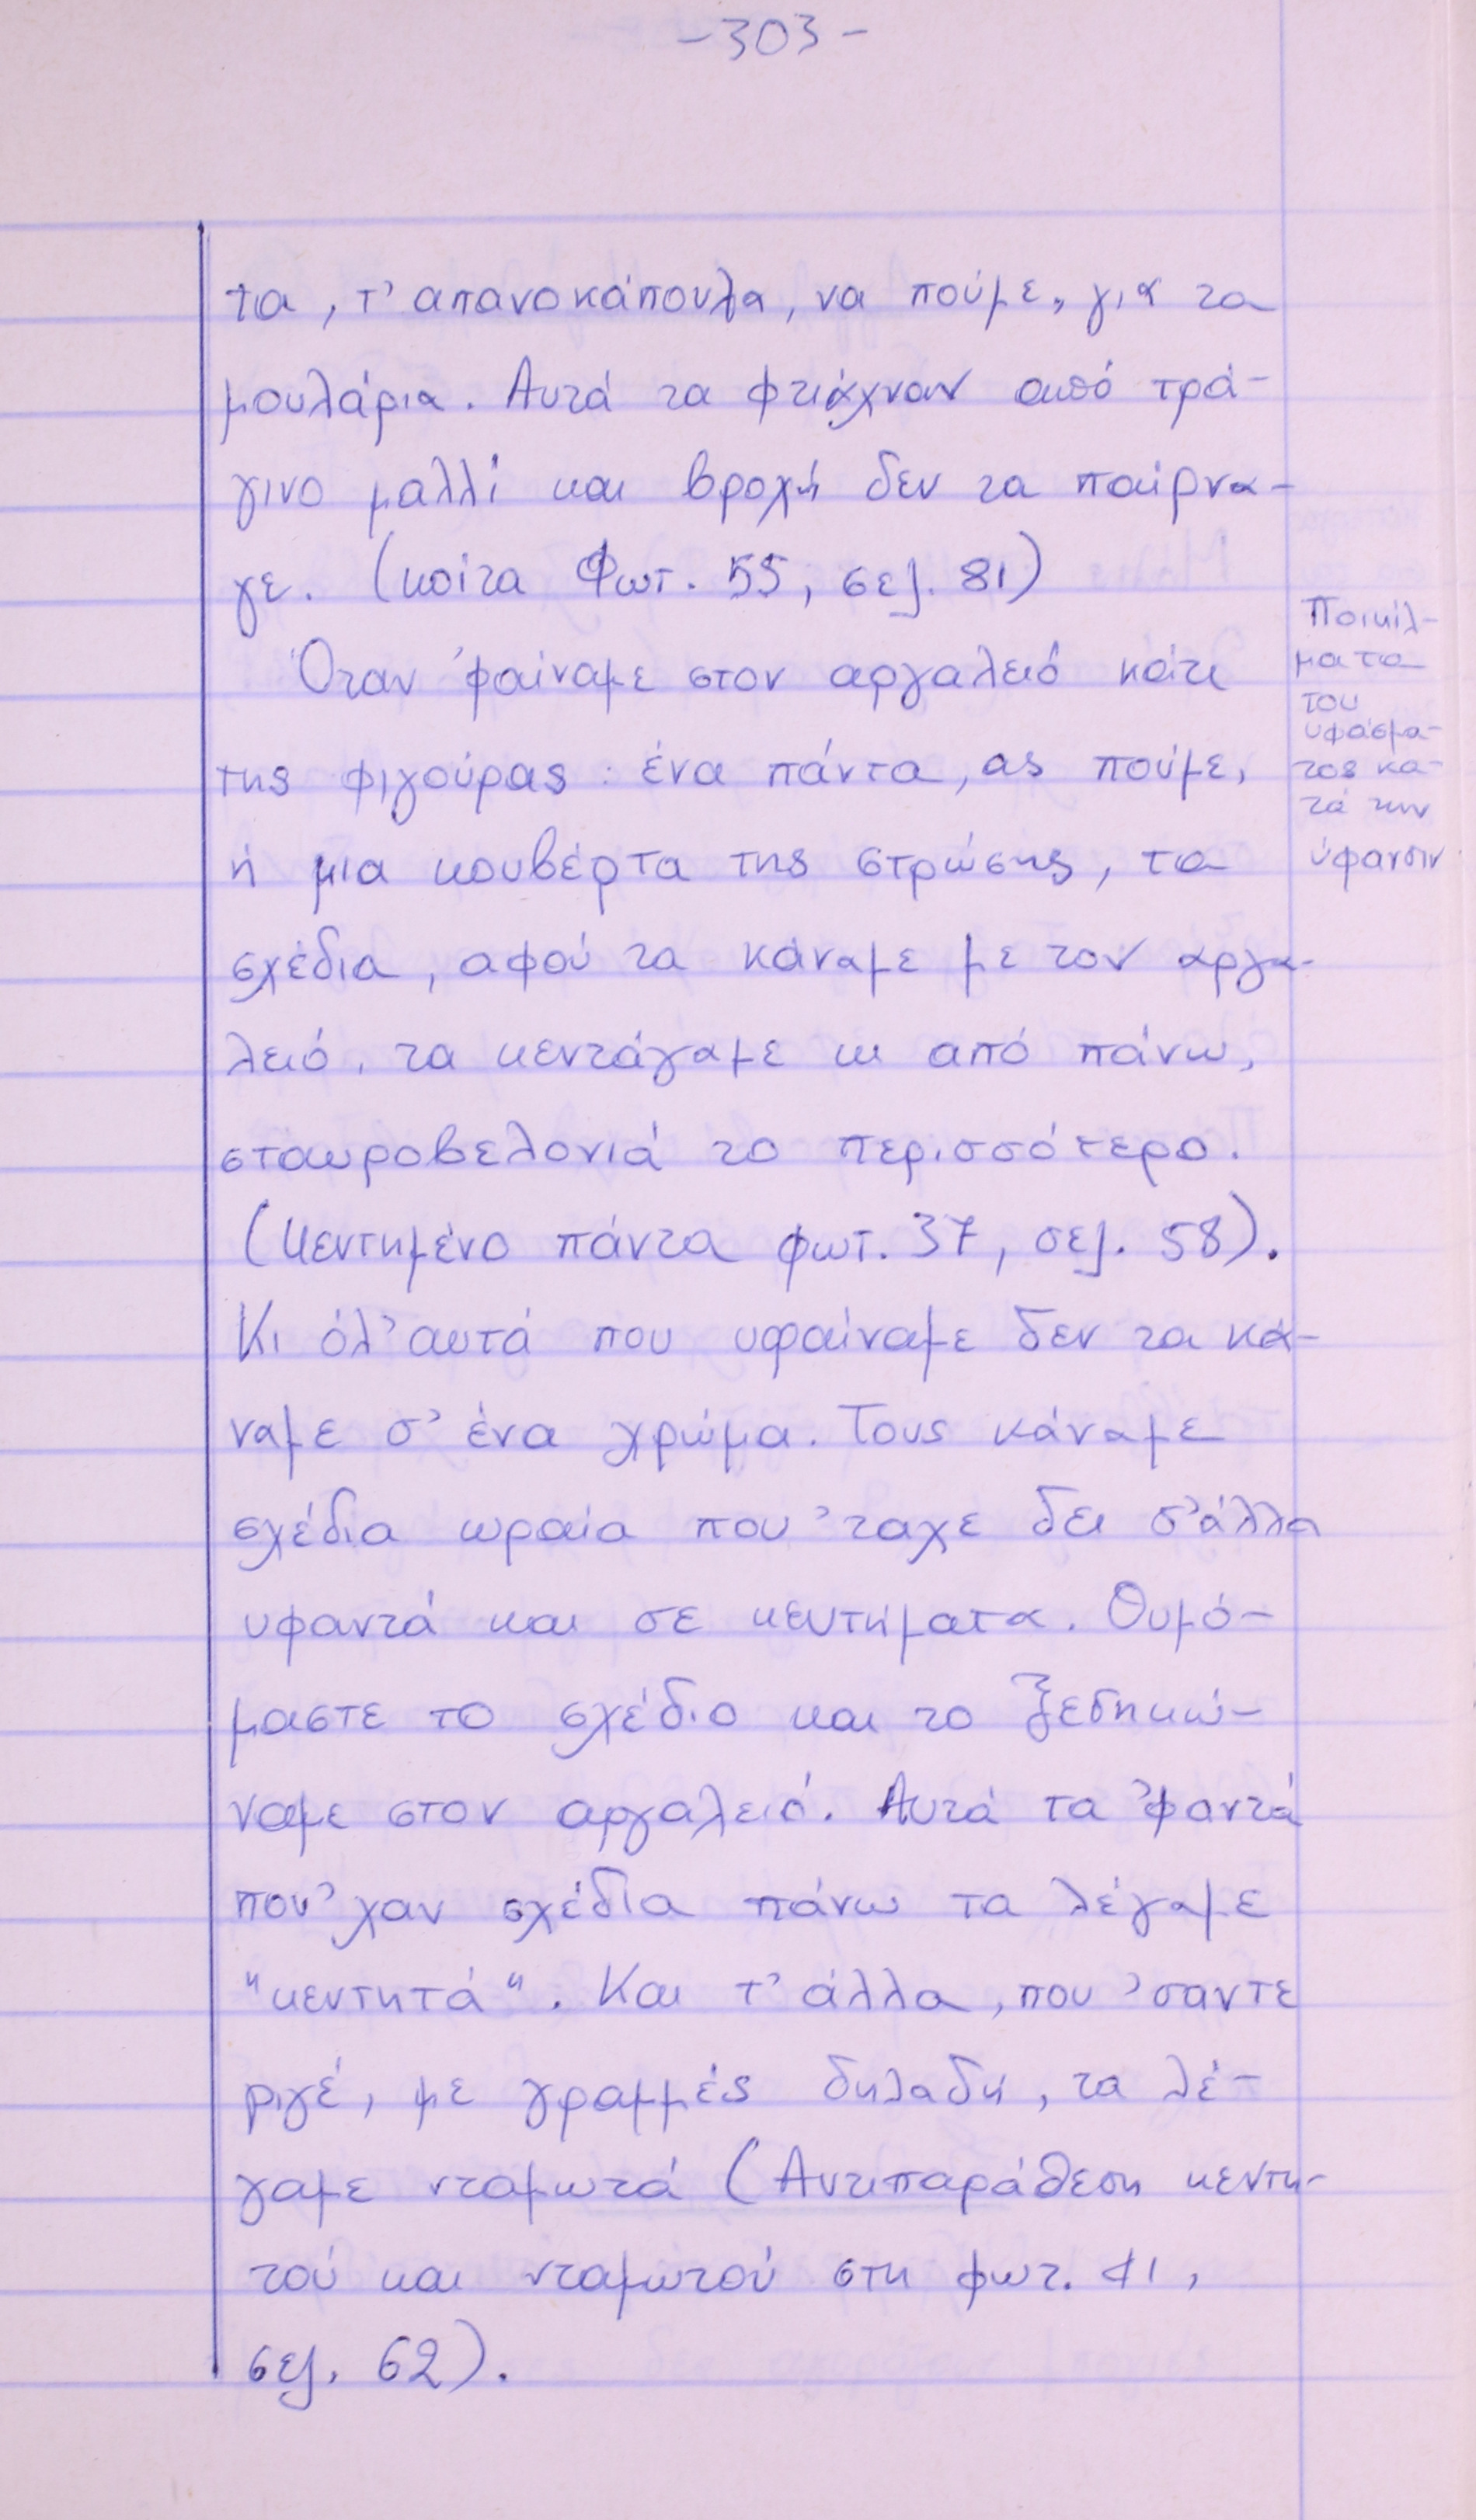 -303-
τα, τ' απανοκάπουλα, να πούμε, για τα
μουλάρια. Αυτά τα φτιάχναν από τρά-
γινο μαλλί και βροχή δεν τα παίρνα-
γε. (κοίτα Φωτ. 55, σελ. 81)
Όταν 'φαίναμε στον αργαλειό κάτι
της φιγούρας: ένα πάντα, ας πούμε,
ή μια κουβέρτα της στρώσης, τα
σχέδια, αφού τα κάναμε με τον αργα-
λειό, τα κεντάγαμε κι από πάνω,
σταυροβελονιά το περισσότερο.
(Κεντημένο πάντα φωτ. 37, σελ. 58).
Κι όλ' αυτά που υφαίναμε δεν τα κά-
ναμε σ' ένα χρώμα. Τους κάναμε
σχέδια ωραία που 'ταχε δει σ' άλλα
υφαντά και σε κεντήματα. Θυμό-
μαστε το σχέδιο και το ξεσηκώ-
ναμε στον αργαλειό. Αυτά τα 'φαντά
που 'χαν σχέδια πάνω τα λέγαμε
"κεντητά". Και τ' άλλα, που 'σαντε
ριγέ, με γραμμές δηλαδή, τα λέ-
γαμε νταμωτά (Αντιπαράθεση κεντη-
τού και νταμωτού στη φωτ. 41,
σελ. 62).
Ποικίλ-
ματα
του
υφάσμα-
τος κα-
τά την
ύφανσιν